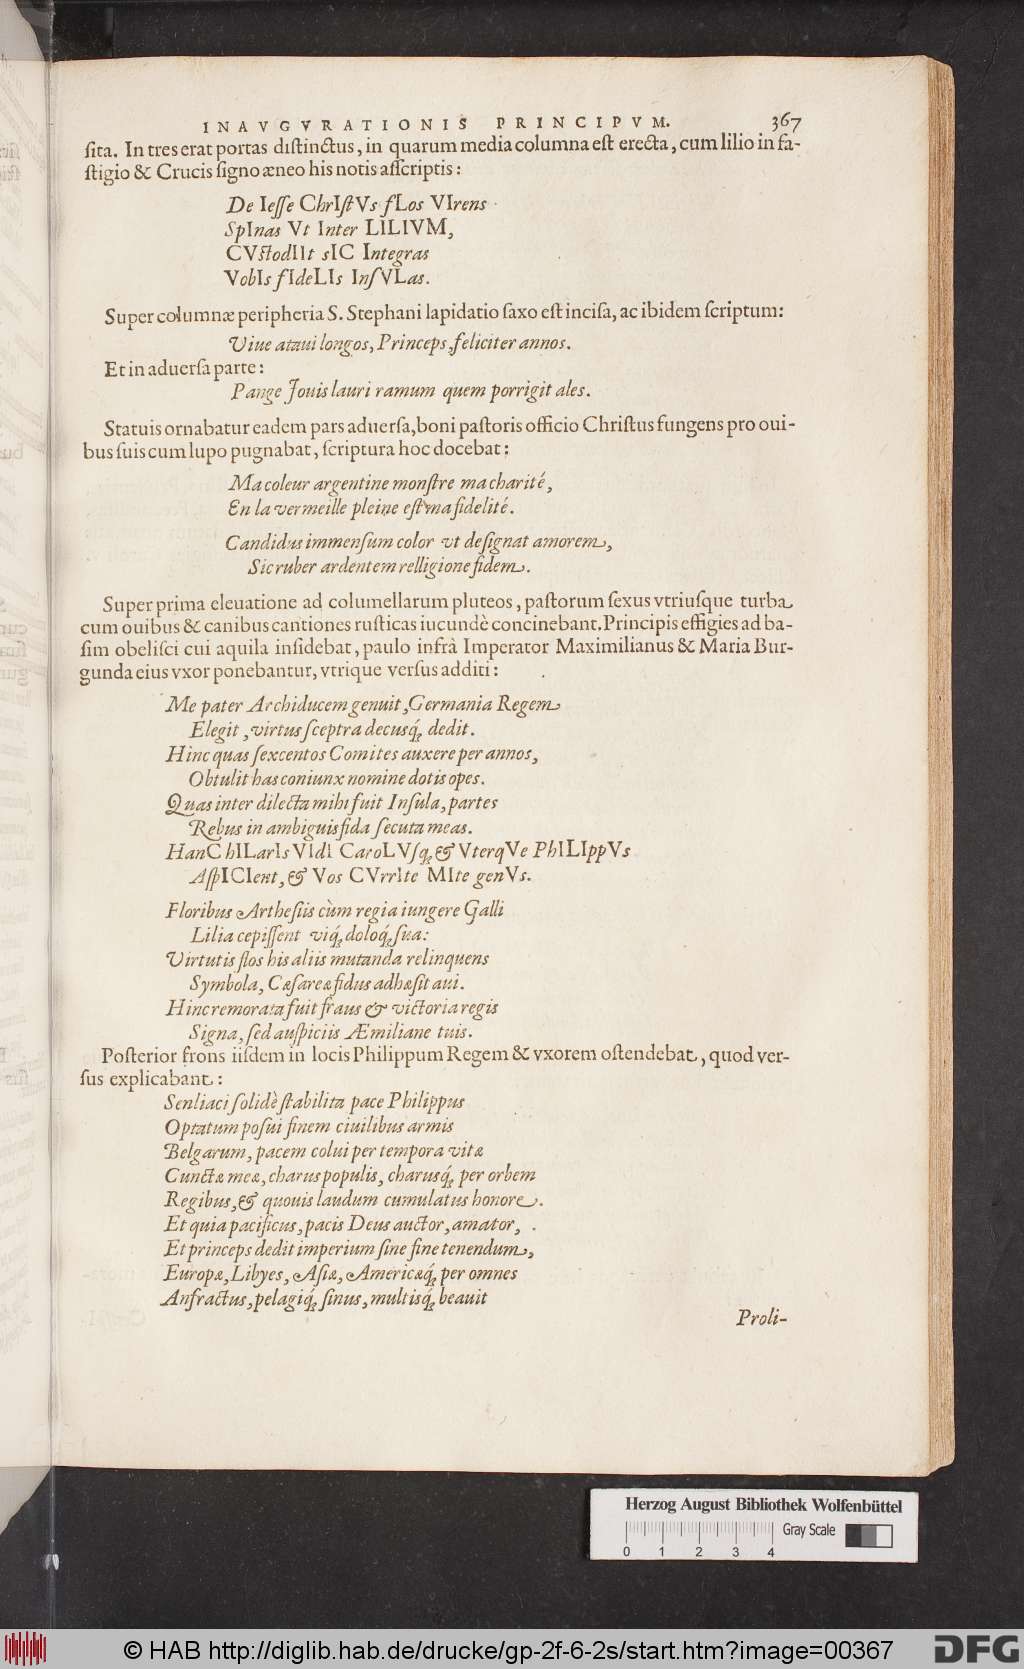 INAVGVRATIONIS PRINCIPVM. 367
ſita. In tres erat portas diſtinctus, in quarum media columna eſt erecta, cum lilio in fa-
ſtigio & Crucis ſigno æneo his notis aſſcriptis:
De Ieſſe ChrIſtVs fLos VIrens
SpInas Vt Inter LILIVM,
CVſtodIIt sIC Integras
VobIs fIdeLIs InſVLas.
Super columnæ peripheria S. Stephani lapidatio ſaxo eſt inciſa, ac ibidem ſcriptum:
Viue ataui longos, Princeps, feliciter annos.
Et in aduerſa parte:
Pange Jouis lauri ramum quem porrigit ales.
Statuis ornabatur eadem pars aduerſa, boni paſtoris officio Chriſtus fungens pro oui-
bus ſuis cum lupo pugnabat, ſcriptura hoc docebat:
Ma coleur argentine monſtre ma charité,
En la vermeille pleine eſt ma fidelité.
Candidus immenſum color vt deſignat amorem,
Sic ruber ardentem relligione fidem.
Super prima eleuatione ad columellarum pluteos, paſtorum ſexus vtriuſque turba
cum ouibus & canibus cantiones ruſticas iucundè concinebant. Principis effigies ad ba-
ſim obeliſci cui aquila inſidebat, paulo infrà Imperator Maximilianus & Maria Bur-
gunda eius vxor ponebantur, vtrique verſus additi:
Me pater Archiducem genuit, Germania Regem
Elegit, virtus ſceptra decusq́; dedit.
Hinc quas ſexcentos Comites auxere per annos,
Obtulit has coniunx nomine dotis opes.
Quas inter dilecta mihi fuit Inſula, partes
Rebus in ambiguis fida ſecuta meas.
HanC hILarIs VIdI CaroLVſq; & VterqVe PhILIppVs
AſpICIent, & Vos CVrrIte MIte genVs.
FloribusArtheſiis cùm regia iungere Galli
Lilia cepiſſent viq́; doloq́; ſua:
Virtutis flos his aliis mutanda relinquens
Symbola, Cæſareæ fidus adhæſit aui.
Hinc remorata fuit fraus & victoria regis
Signa, ſed auſpiciis Æmiliane tuis.
Poſterior frons iiſdem in locis Philippum Regem & vxorem oſtendebat, quod ver-
ſus explicabant:
Senliaci ſolidè ſtabilita pace Philippus
Optatum poſui finem ciuilibus armis
Belgarum, pacem colui per tempora vitæ
Cunctæ meæ, charus populis, charusq́; per orbem
Regibus, & quouis laudum cumulatus honore.
Et quia pacificus, pacis Deus auctor, amator,
Et princeps dedit imperium ſine fine tenendum,
Europæ, Libyes, Aſiæ, Americæq́; per omnes
Anfractus, pelagiq́; ſinus, multisq́; beauit
Proli-
Herzog August Bibliothek Wolfenbüttel
Gray Scale
0 1 2 3 4
© HAB http://diglib.hab.de/drucke/gp-2f-6-2s/start.htm?image=00367
DFG